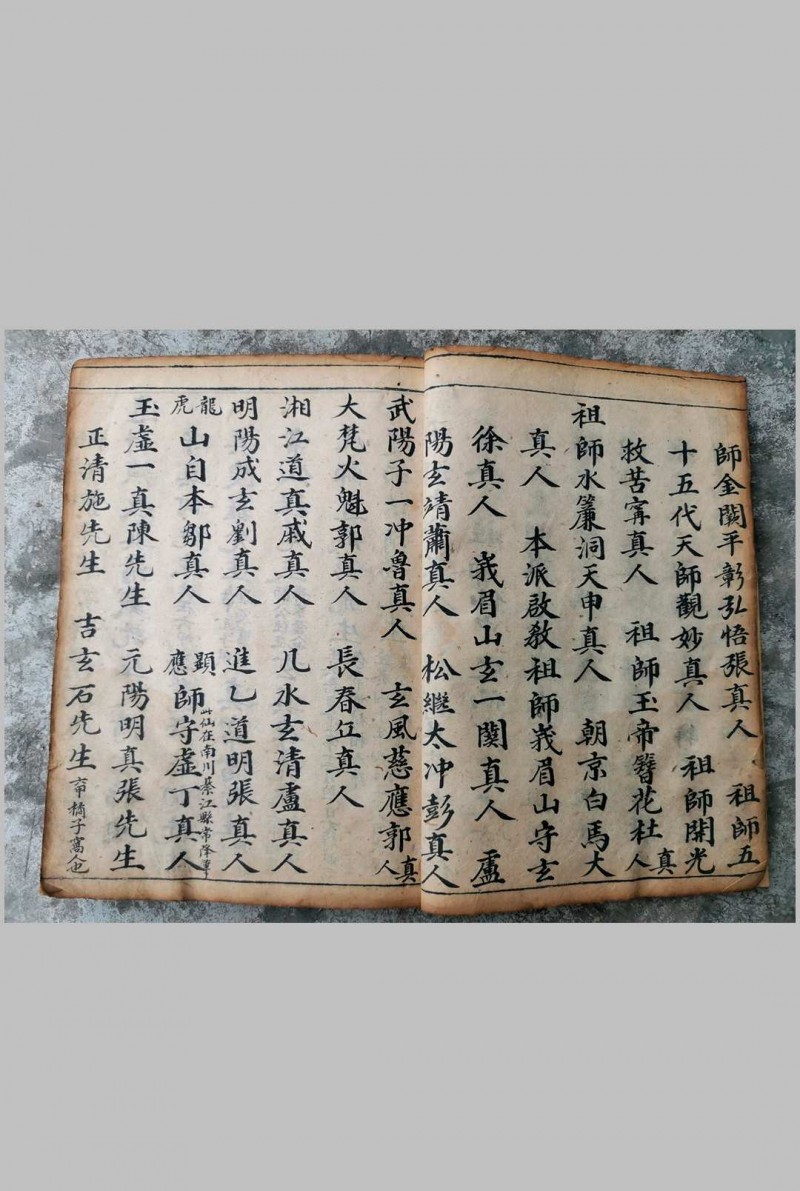 師金闕平彰弘悟張真人　祖師五
十五代天師觀妙真人　祖師開光
救苦甯真人　祖師玉帝簪花杜真人
祖師水簾洞天申真人　朝京白馬大
真人　本派啟教祖師峩眉山守玄
徐真人　峩眉山玄一闗真人　盧
陽玄靖蕭真人　松繼太冲彭真人
武陽子一冲魯真人　玄風慈應郭真人
大梵火魁郭真人　長春丘真人
湘江道真戚真人　几水玄清盧真人
明陽成玄劉真人　進乙道明張真人
龍虎山自本鄒真人　顕應師守虛丁真人　此仙在南川綦江縣常隆
玉虛一真陳先生　元陽明真張先生
正清施先生　吉玄石先生　橘子窩人也